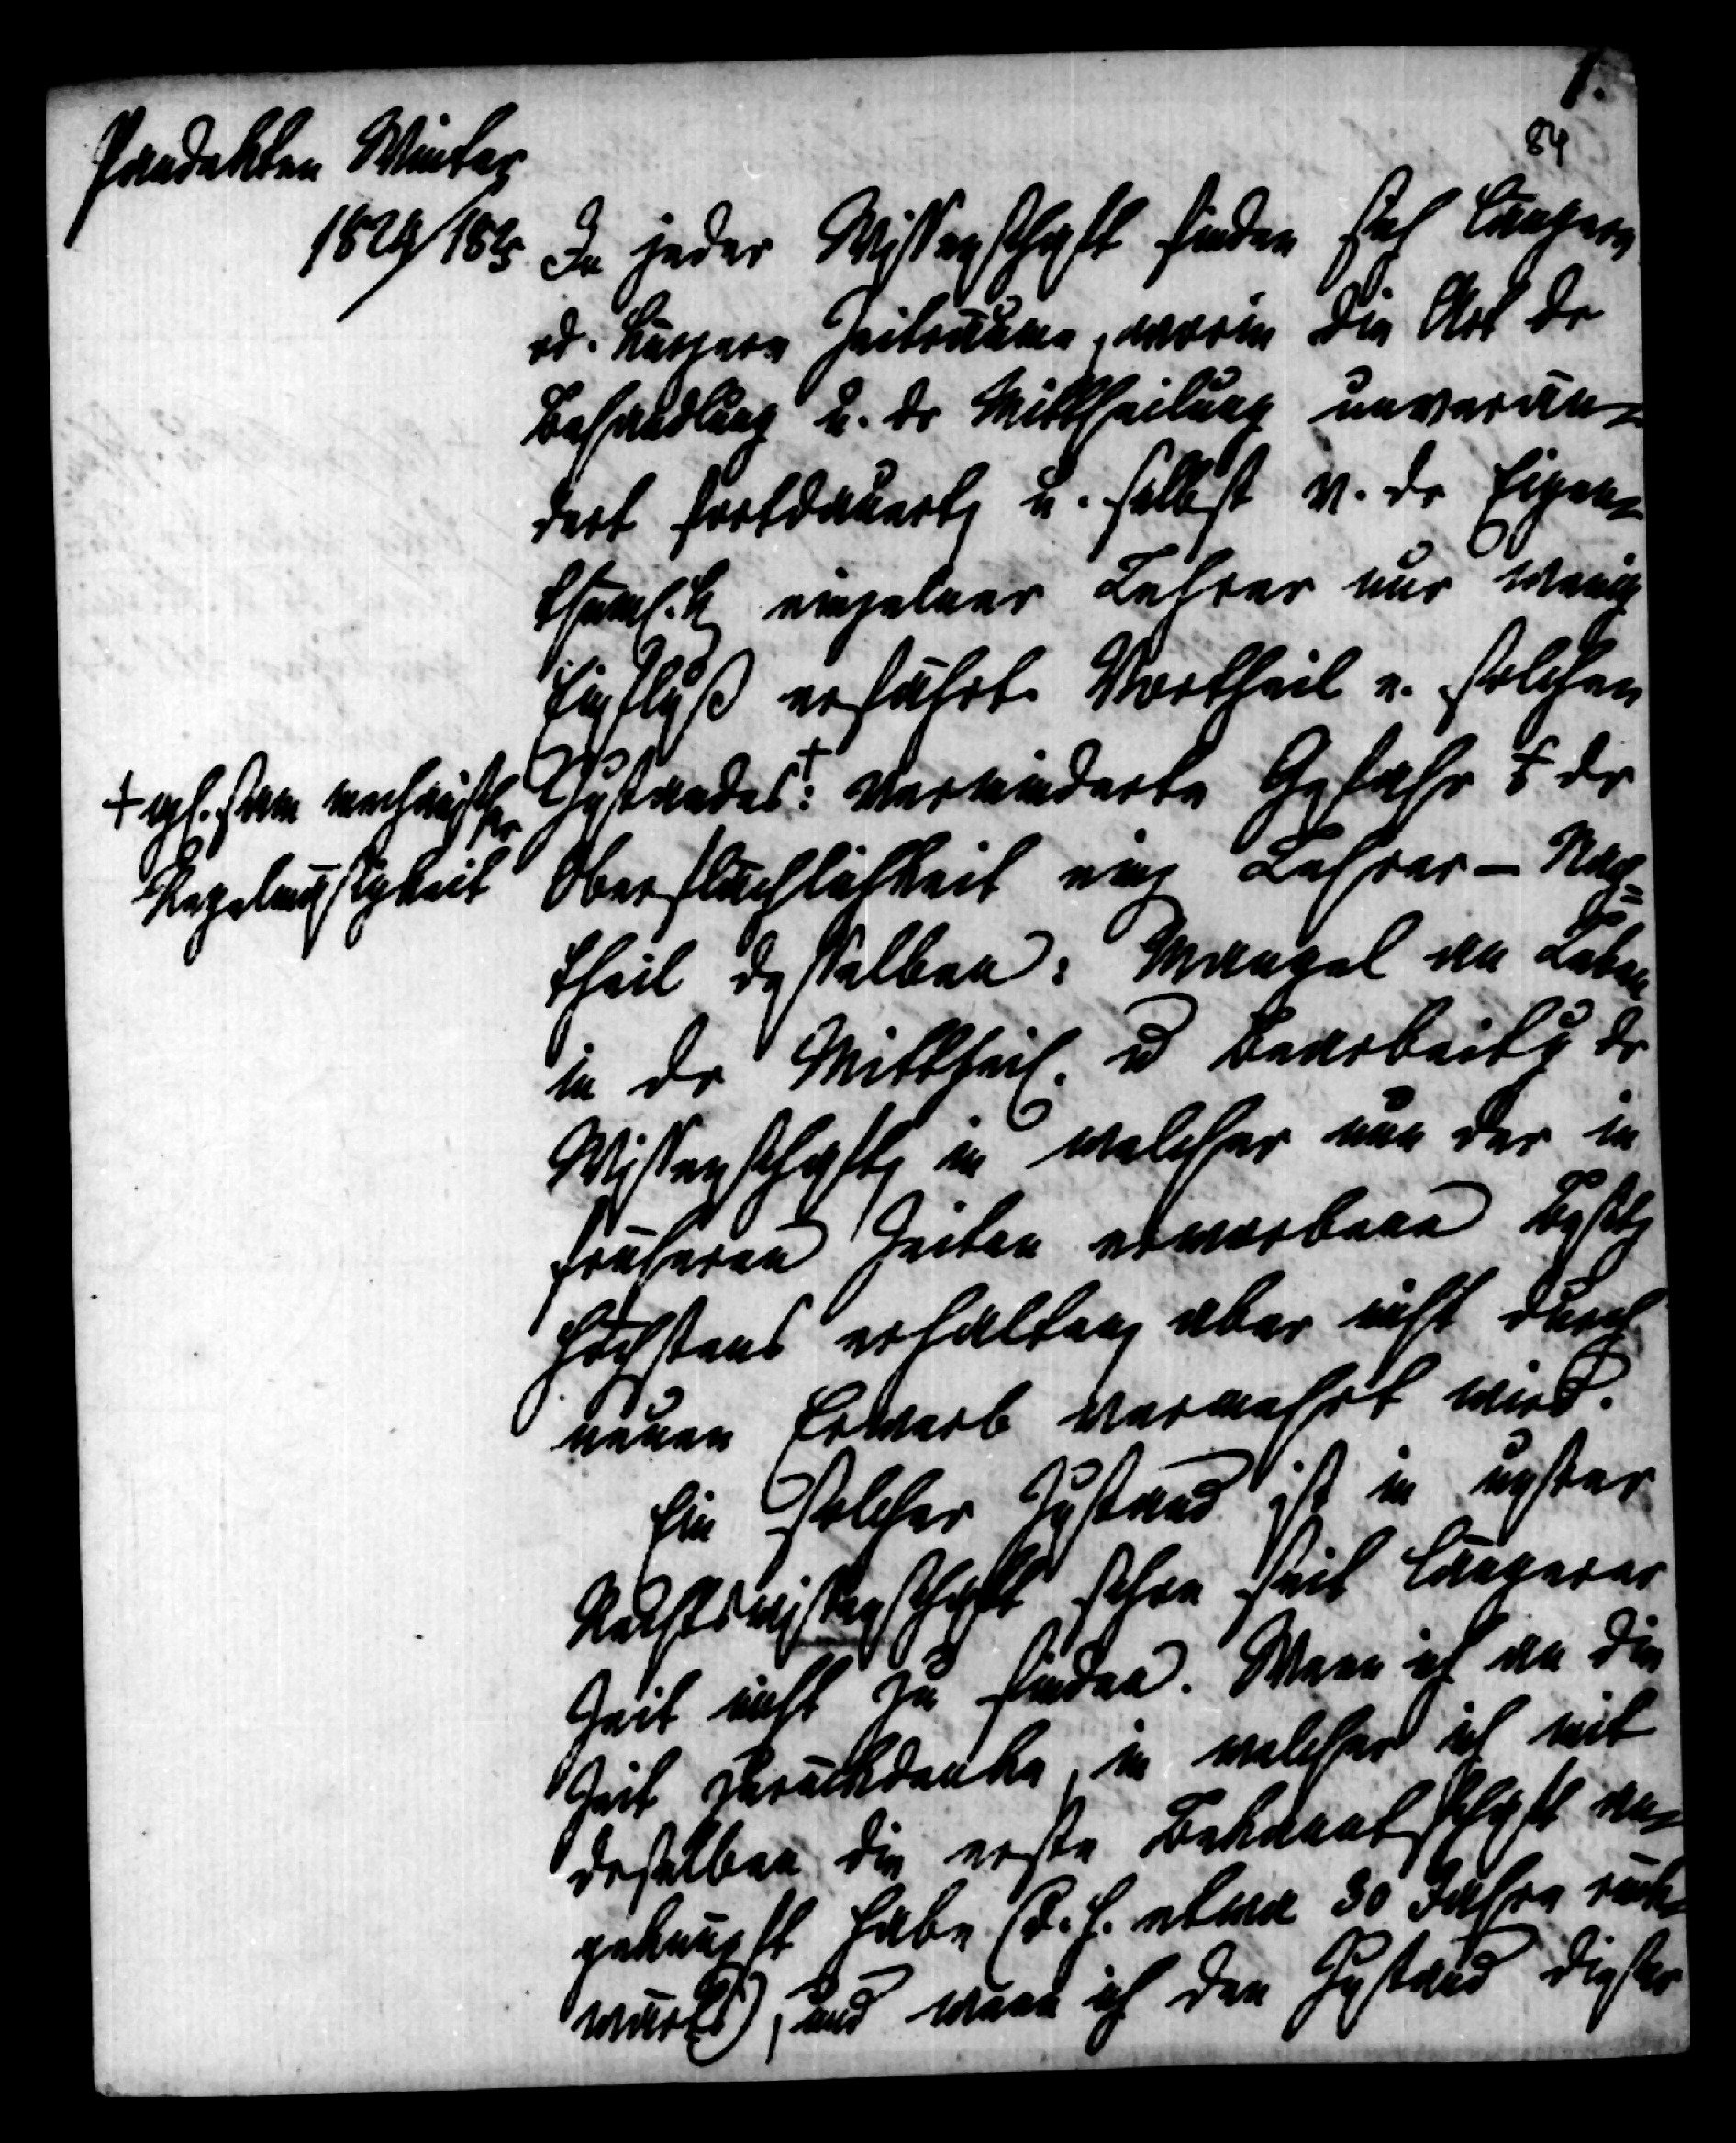 1.
84
Pandekten Winter
1824/185
In jeder Wissenschaft finden sich längere
od. kürzere Zeiträume, worin die Art dr
Behandlung u. dr Mittheilung unverän-
dert fortdauert, u. selbst v. dr Eigen-
thüml.k einzelner Lehrer nur wenig
Einfluß erfährt. Vortheil e. solchen
Zustandes+: verminderte Gefahr dr
+ gl. sam mechanischer
Regelmäßigkeit
Oberflächlichkeit einz Lehrer – Nach-
theil desselben: Mangel an Leben
in dr Mittheil. u Bearbeitg dr
Wissenschaft, in welcher nun der in
früheren Zeiten erworbene Besitz
höchstens erhalten, aber nicht durch
neuen Erwerb vermehrt wird.
Ein solcher Zustand ist in unsrer
Rechtswissenschaft schon seit längerer
Zeit nicht zu finden. Wenn ich an die
Zeit zurückdenke, in welcher ich mit
derselben die erste Bekanntschaft an-
geknüpft habe (d. h. etwa 30 Jahre rück-
wärts), und wenn ich den Zustand dieser